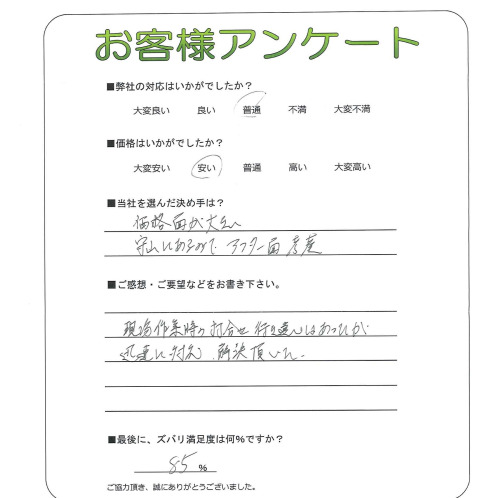 お客様アンケート
■弊社の対応はいかがでしたか？
大変良い 良い 普通 不満 大変不満
■価格はいかがでしたか？
大変安い 安い 普通 高い 大変高い
■当社を選んだ決め手は？
価格面が大きい
守山にあるので アフター面
■ご感想・ご要望などをお書き下さい。
現場作業時の打合せ 行き違いはあったが
迅速に対応、解決頂いた。
■最後に、ズバリ満足度は何%ですか？
85 %
ご協力頂き、誠にありがとうございました。